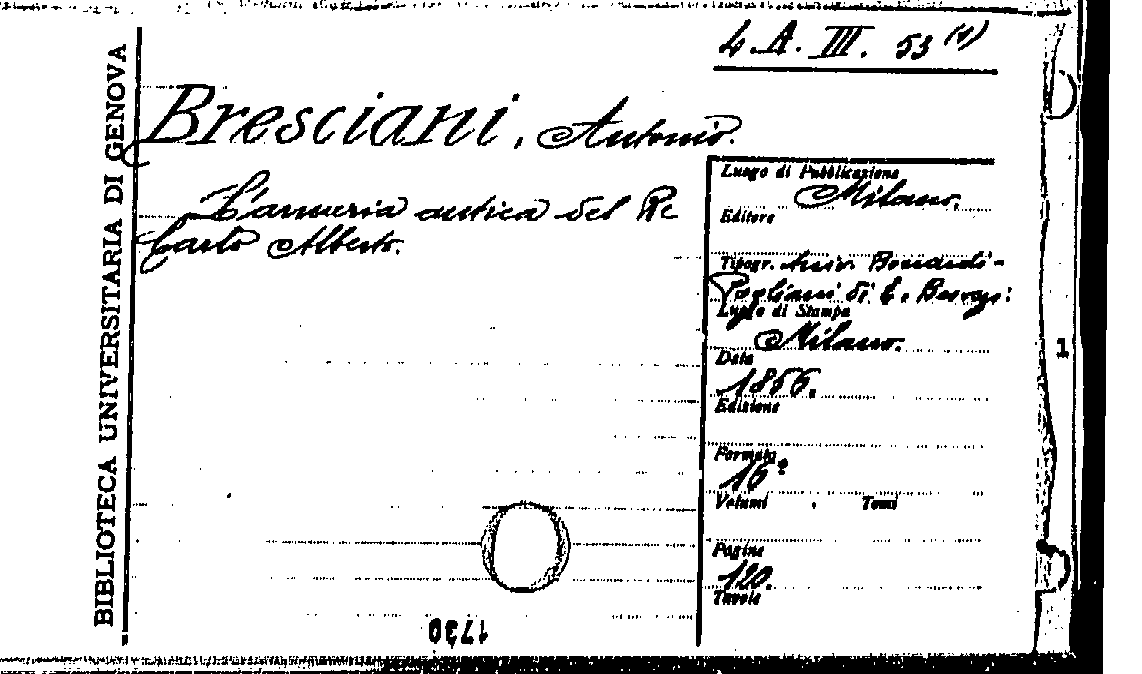 4. A. III. 53 (4)
BIBLIOTECA UNIVERSITARIA DI GENOVA
Bresciani, Antonio.
L'armeria antica del Re
Carlo Alberto.
Luogo di Pubblicazione
Milano.
Editore
Tipogr.
Pogliani di E. Besozzi
Luogo di Stampa
Milano.
Data
1856.
Edizione
Formato
16º
Volumi Tomi
Pagine
120.
Tavole
1730
1